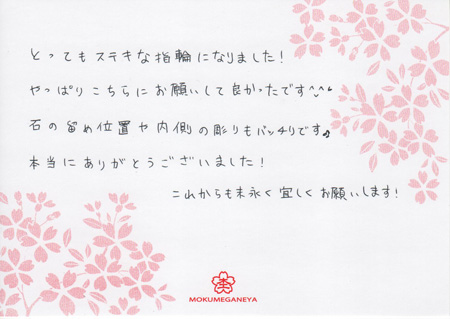 とってもステキな指輪になりました!
やっぱりこちらにお願いして良かったです^^
石の留め位置や内側の彫りもバッチリです♪
本当にありがとうございました!
これからも末永く宜しくお願いします!
MOKUMEGANEYA